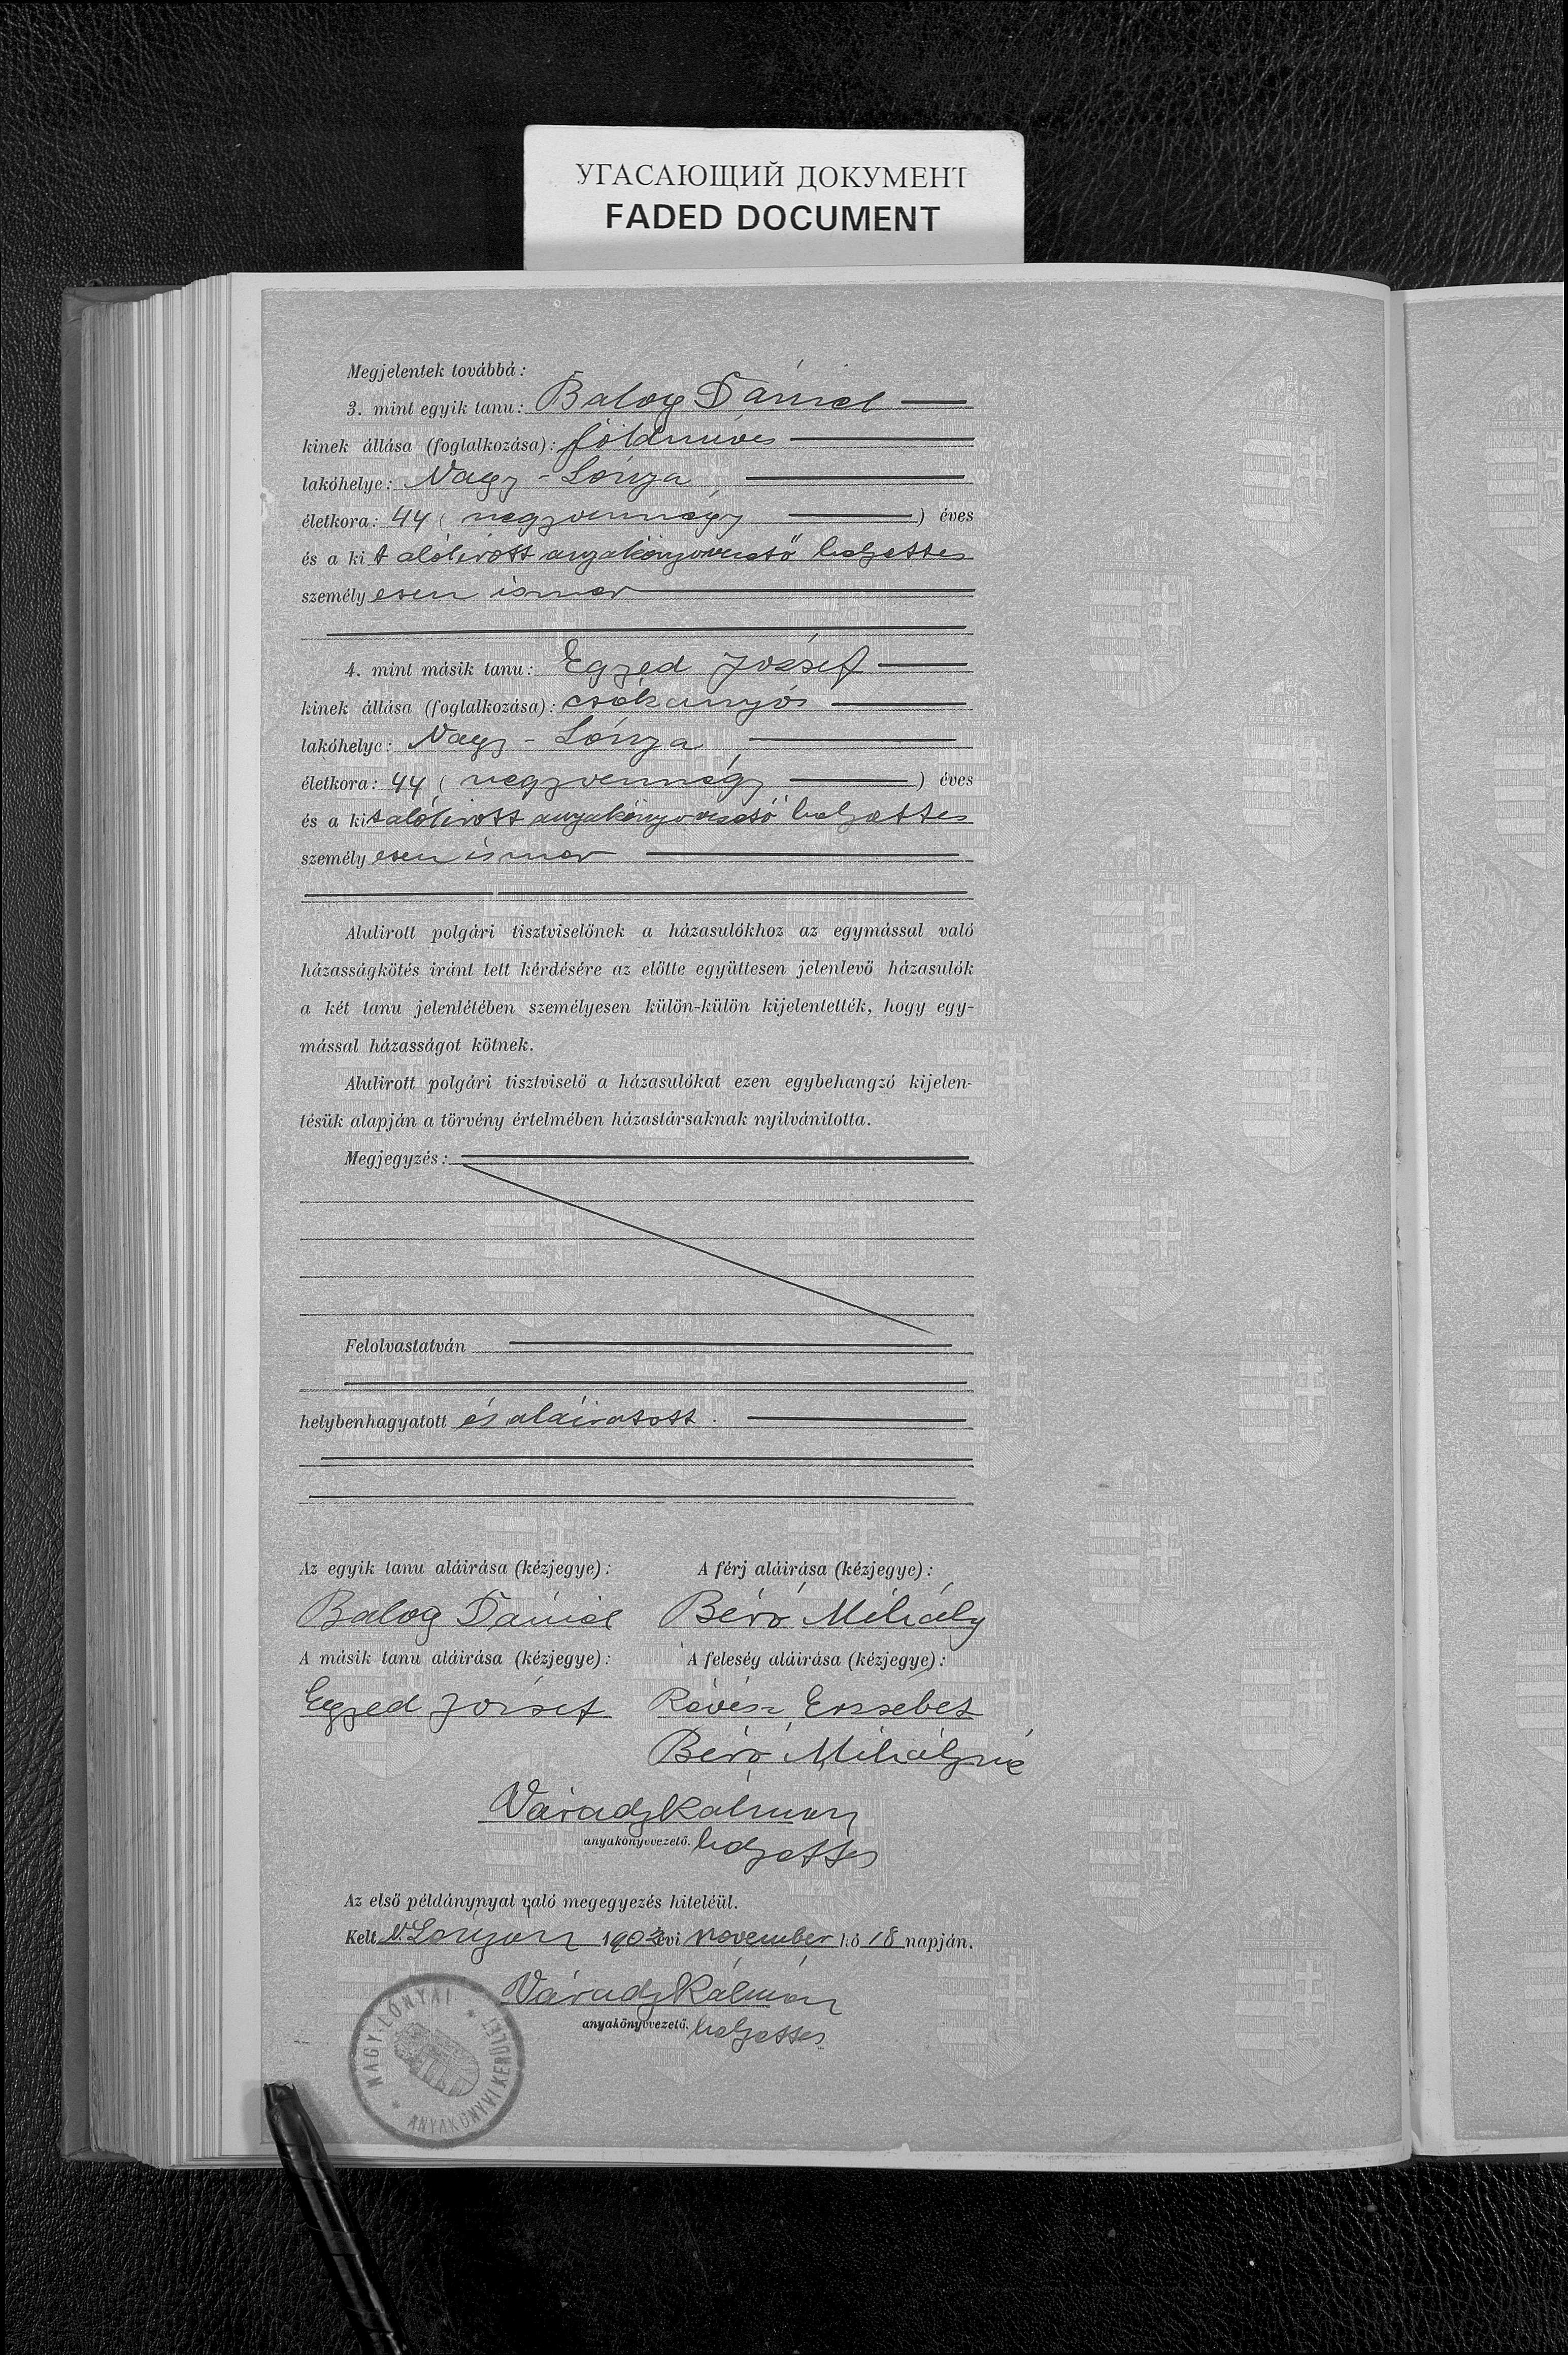 УГАСАЮЩИЙ ДОКУМЕНТ
FADED DOCUMENT
Megjelentek továbbá:
3. mint egyik tanu: Balog Dániel
kinek állása (foglalkozása): földmüves
lakóhelye: Nagy-Lónya
életkora: 44 (negyvennégy) éves
és a kit alólirott anyakönyvvezető helyettes
személyesen ismer
4. mint másik tanu: Egyed József
kinek állása (foglalkozása): csákányós
lakóhelye: Nagy-Lónya
életkora: 44 (negyvennégy) éves
és a kit alólirott anyakönyvvezető helyettes
személyesen ismer
Alulirott polgári tisztviselőnek a házasulókhoz az egymással való
házasságkötés iránt tett kérdésére az előtte együttesen jelenlevő házasulók
a két tanu jelenlétében személyesen külön-külön kijelentették, hogy egy-
mással házasságot kötnek.
Alulirott polgári tisztviselő a házasulókat ezen egybehangzó kijelen-
tésük alapján a törvény értelmében házastársaknak nyilvánitotta.
Megjegyzés:
Felolvastatván
helybenhagyatott és aláiratott.
Az egyik tanu aláirása (kézjegye): A férj aláirása (kézjegye):
Balog Dániel Biró Mihály
A másik tanu aláirása (kézjegye): A feleség aláirása (kézjegye):
Egyed József Révész Erzsébet
Biró Mihályné
Várady Kálmán
anyakönyvvezető. helyettes
Az első példánynyal való megegyezés hiteléül.
Kelt N.Lónyán 1902 évi november hó 18 napján.
Várady Kálmán
anyakönyvvezető. helyettes
NAGY-LÓNYAI ANYAKÖNYVI KERÜLET